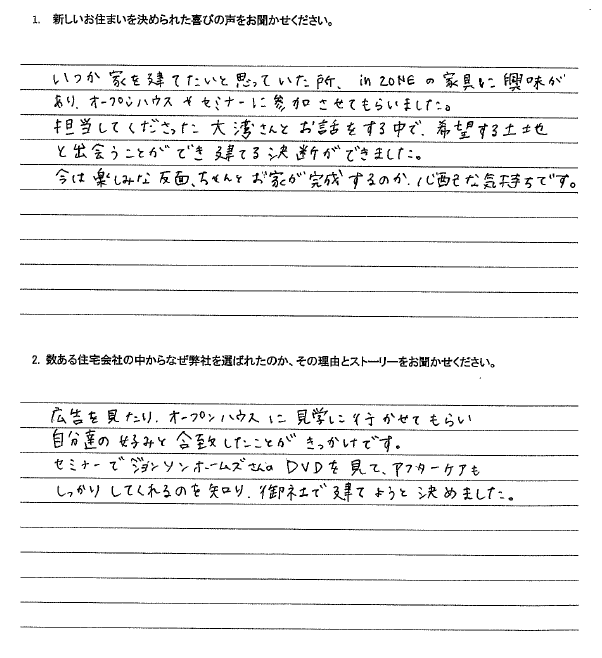 1. 新しいお住まいを決められた喜びの声をお聞かせください。
いつか家を建てたいと思っていた所、in ZONEの家具に興味が
あり、オープンハウスやセミナーに参加させてもらいました。
担当してくださった大湾さんとお話をする中で、希望する土地
と出会うことができ建てる決断ができました。
今は楽しみな反面、ちゃんとお家が完成するのか、心配な気持ちです。
2. 数ある住宅会社の中からなぜ弊社を選ばれたのか、その理由とストーリーをお聞かせください。
広告を見たり、オープンハウスに見学に行かせてもらい
自分達の好みと合致したことがきっかけです。
セミナーでジョンソンホームズさんのDVDを見て、アフターケアも
しっかりしてくれるのを知り、御社で建てようと決めました。